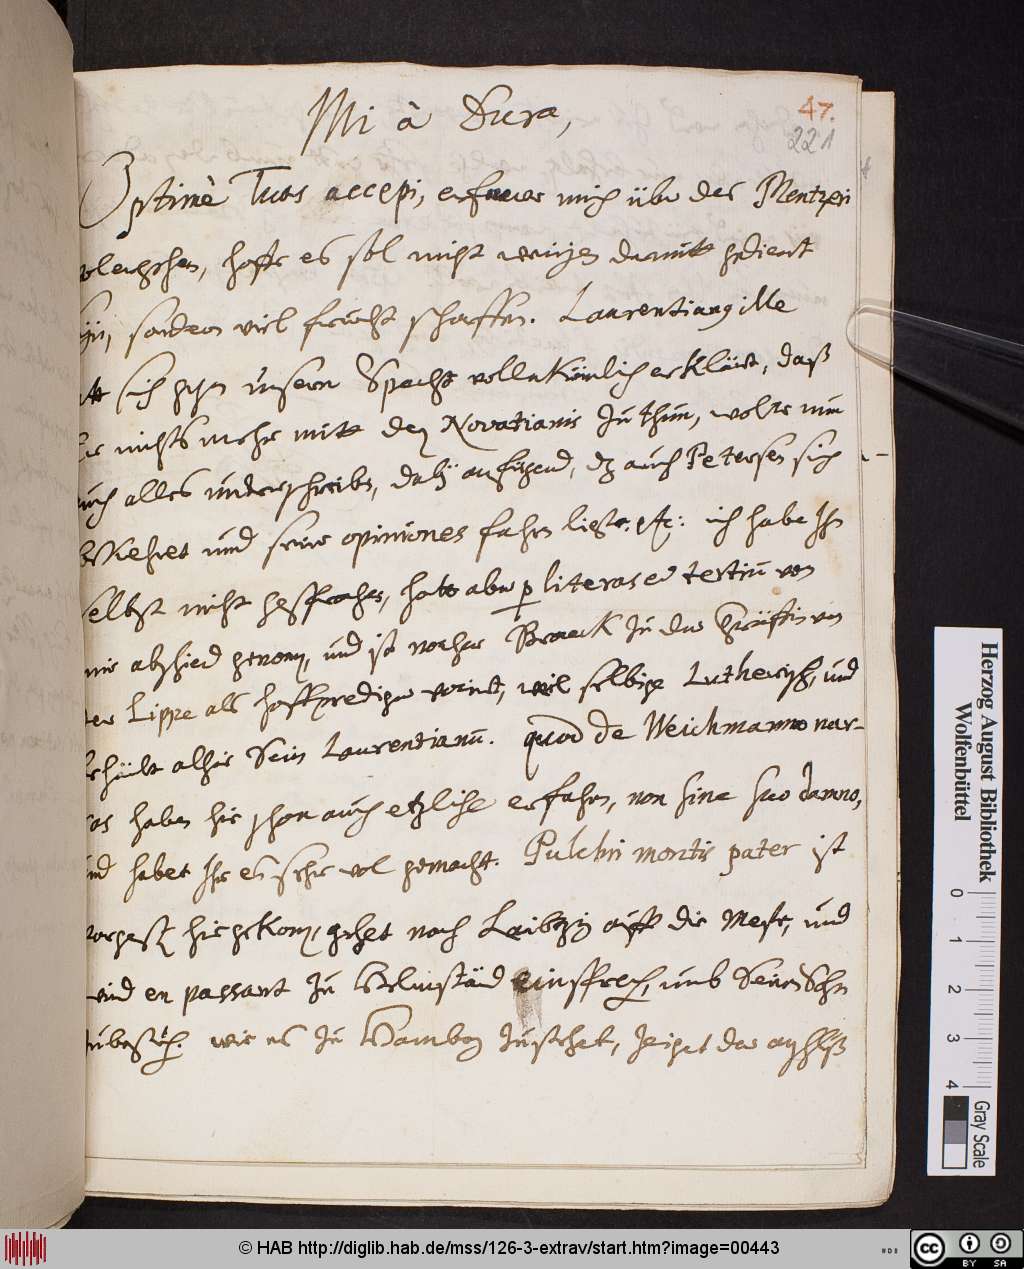 Mi à Dura,
47.
221
Optimè Tuas accepi, erfrewe mich über des Mentzeri
hoffe es sol nicht wenigen damitt gedient
sondern viel frücht schaffen. Laurentianq ille
sich gegen unsern Specht vollnkömlich erklärt, daß
nichts mehr mitt den Novatianis zu thun, wolte nun
auch alles underschreiben, dabÿ anfügend, dz auch Petersen sich
und seine opiniones fahren ließe. etc: ich habe Ihn
selbst nicht gesprochen, hatt aber p literas et tertiū von
mir abschied genom, und ist vorher zu der Gräffin von
der Lippe als Hoffprediger weil selbige Lutherisch, und
alhier Sein Laurentianū. quod de Weichmanno nar-
ras haben hie schon auch etzliche erfahren, non sine suo damno,
und habet Ihr es sehr wol gemacht. Pulchri montis pater ist
hie gekom, gehet nach Leibzig auff die Mess, und
wird en passant zu Helmstäd einsprech, umb Seinen Sohn
zubesuch. wie es zu Hambog zustehet, zeiget das
Herzog August Bibliothek
Wolfenbüttel
0 1 2 3 4
Gray Scale
© HAB http://diglib.hab.de/mss/126-3-extrav/start.htm?image=00443
cc BY SA